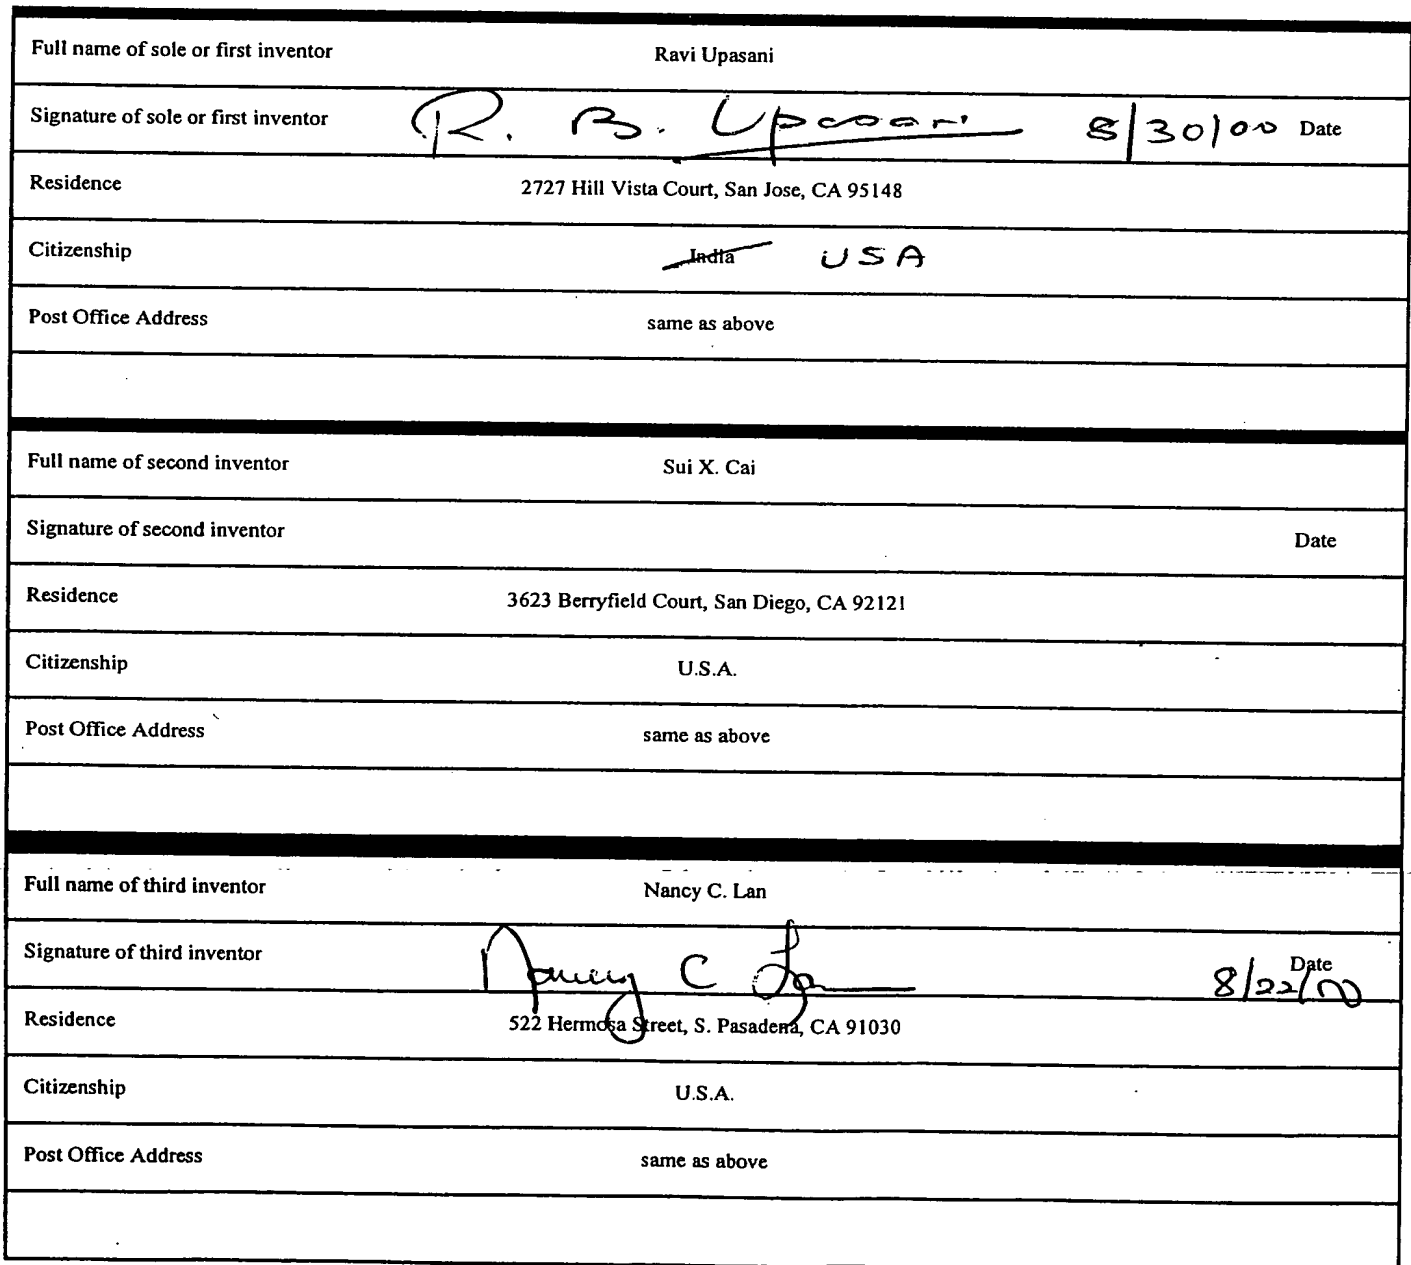 Full name of sole or first inventor Ravi Upasani
Signature of sole or first inventor R. B. Upasani 8/30/00 Date
Residence 2727 Hill Vista Court, San Jose, CA 95148
Citizenship India USA
Post Office Address same as above
Full name of second inventor Sui X. Cai
Signature of second inventor Date
Residence 3623 Berryfield Court, San Diego, CA 92121
Citizenship U.S.A.
Post Office Address same as above
Full name of third inventor Nancy C. Lan
Signature of third inventor Nancy C Lan 8/22/00 Date
Residence 522 Hermosa Street, S. Pasadena, CA 91030
Citizenship U.S.A.
Post Office Address same as above